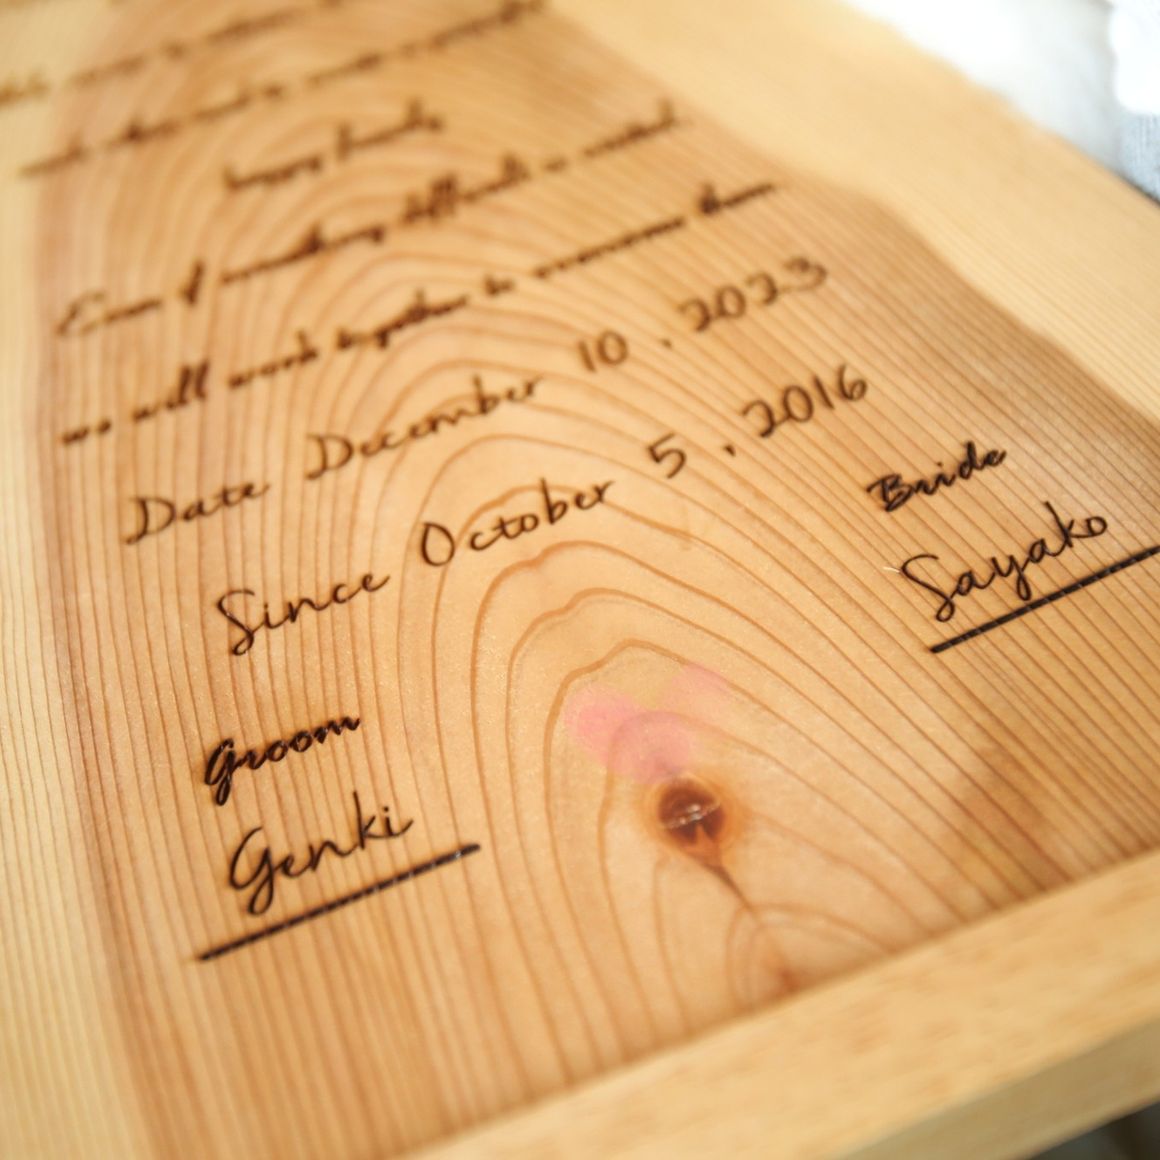 happy family.
Even if something difficult is waited.
we will work together to overcome them.
Date December 10, 2023
Since October 5, 2016
Bride
Sayako
Groom
Genki